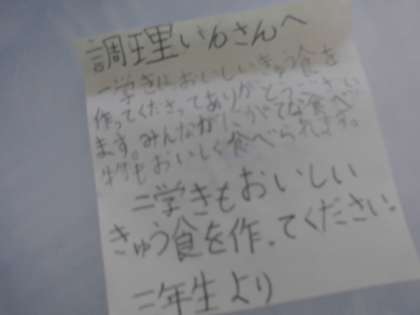 調理いんさんへ
一学きはおいしいきゅう食を
作ってくださってありがとうござい
ます。みんながにがてな食べ
物もおいしく食べられます。
二学きもおいしい
きゅう食を作ってください。
二年生より